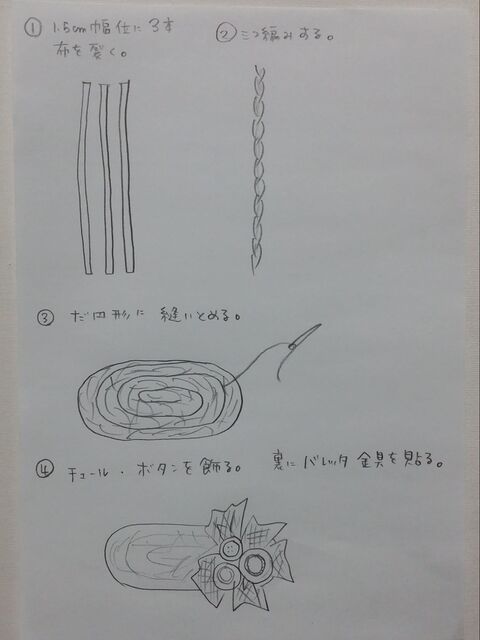 ① 1.5cm幅位に3本
布を裂く。
② 三つ編みする。
③ だ円形に 縫いとめる。
④ チュール・ボタンを飾る。 裏にバレッタ金具を貼る。